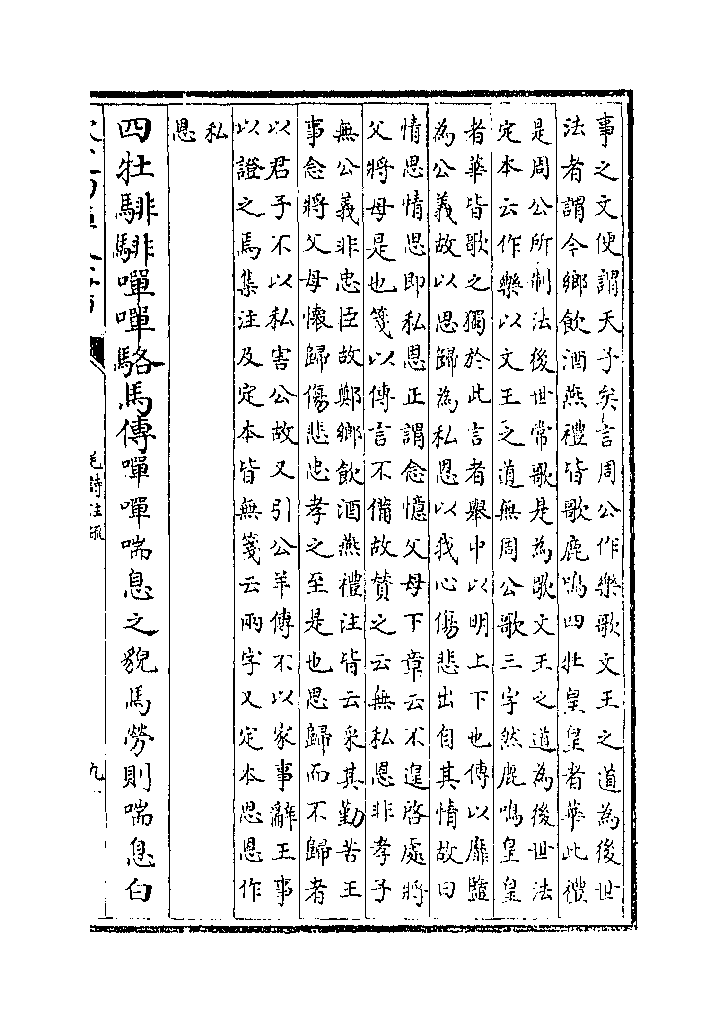 事之文便謂天子矣言周公作樂歌文王之道為後世
法者謂今鄉飲酒燕禮皆歌鹿鳴四牡皇皇者華此禮
是周公所制法後世常歌是為歌文王之道為後世法
定本云作樂以文王之道無周公歌三字然鹿鳴皇皇
者華皆歌之獨於此言者舉中以明上下也傳以靡盬
為公義故以思歸為私恩以我心傷悲出自其情故曰
情思情思即私恩正謂念憶父母下章云不遑啓處將
父將母是也箋以傳言不備故贊之云無私恩非孝子
無公義非忠臣故鄭鄉飲酒燕禮注皆云采其勤苦王
事念將父母懷歸傷悲忠孝之至是也思歸而不歸者
以君子不以私害公故又引公羊傳不以家事辭王事
以證之焉集注及定本皆無箋云兩字又定本思恩作
私
恩
四牡騑騑嘽嘽駱馬傳嘽嘽喘息之貌馬勞則喘息白
毛詩注疏
九